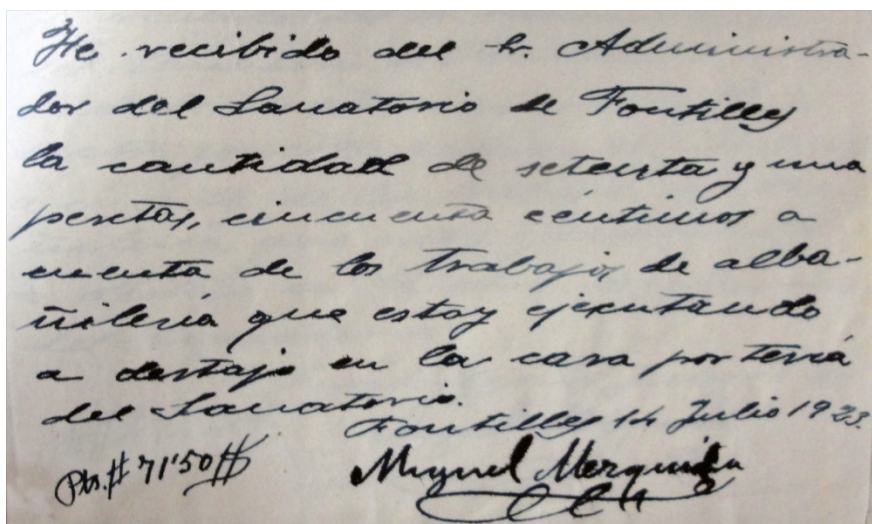 He recibido del Sr. Administra-
dor del Sanatorio de Fontilles
la cantidad de setenta y una
pesetas, cincuenta céntimos a
cuenta de los trabajos de alba-
ñilería que estoy ejecutando
a destajo en la casa portería
del Sanatorio.
Fontilles 14 Julio 1923.
Pts. # 71'50 #
Miguel